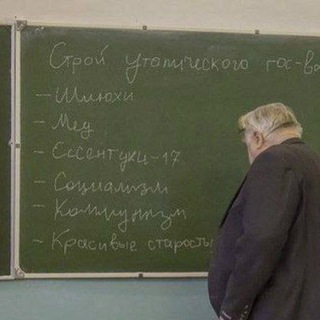 Строй утопического гос-ва
– Шлюхи
– Мед
– Ессентуки-17
– Социализм
– Коммунизм
– Красивые старосты